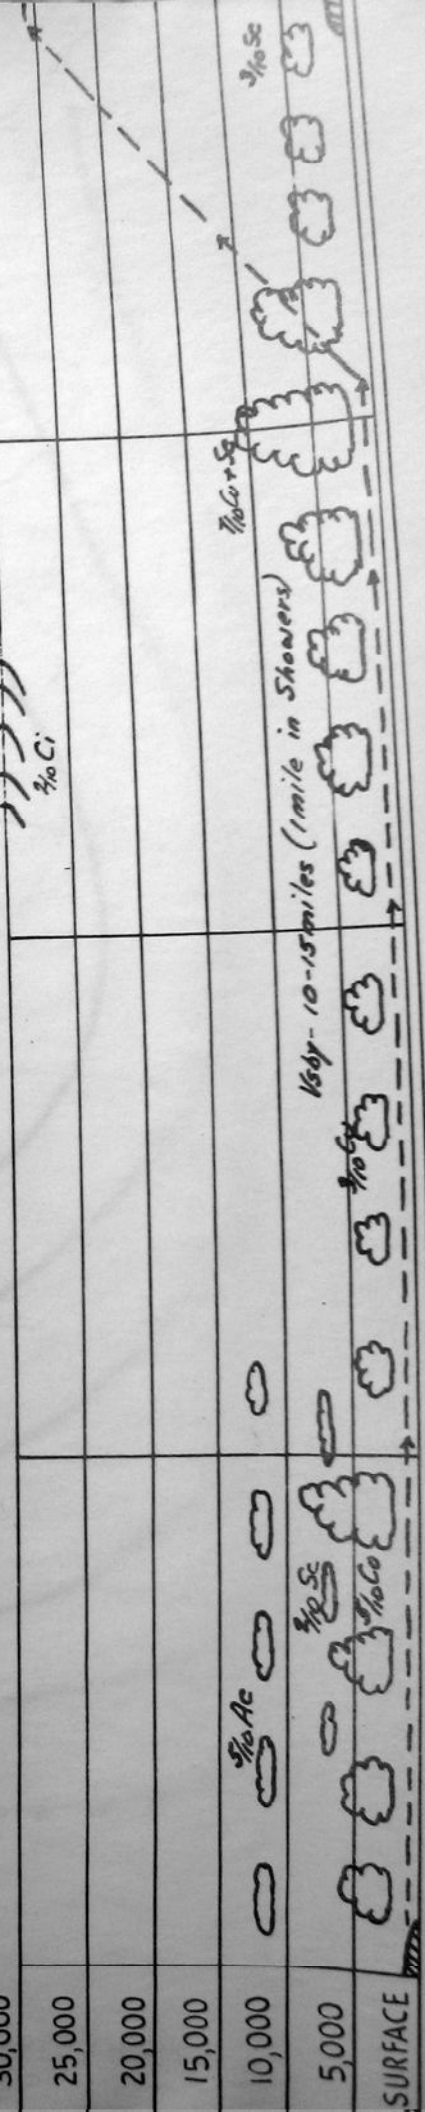 30,000
25,000
20,000
15,000
10,000
5,000
SURFACE
5/10 Ac
5/10 Cu
3/10 Cu
Vsby - 10-15 miles (1 mile in Showers)
2/10 Ci
7/10 Cu + Sc
3/10 Sc